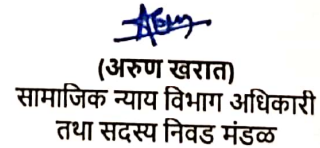 (अरुण खरात)
सामाजिक न्याय विभाग अधिकारी
तथा सदस्य निवड मंडळ